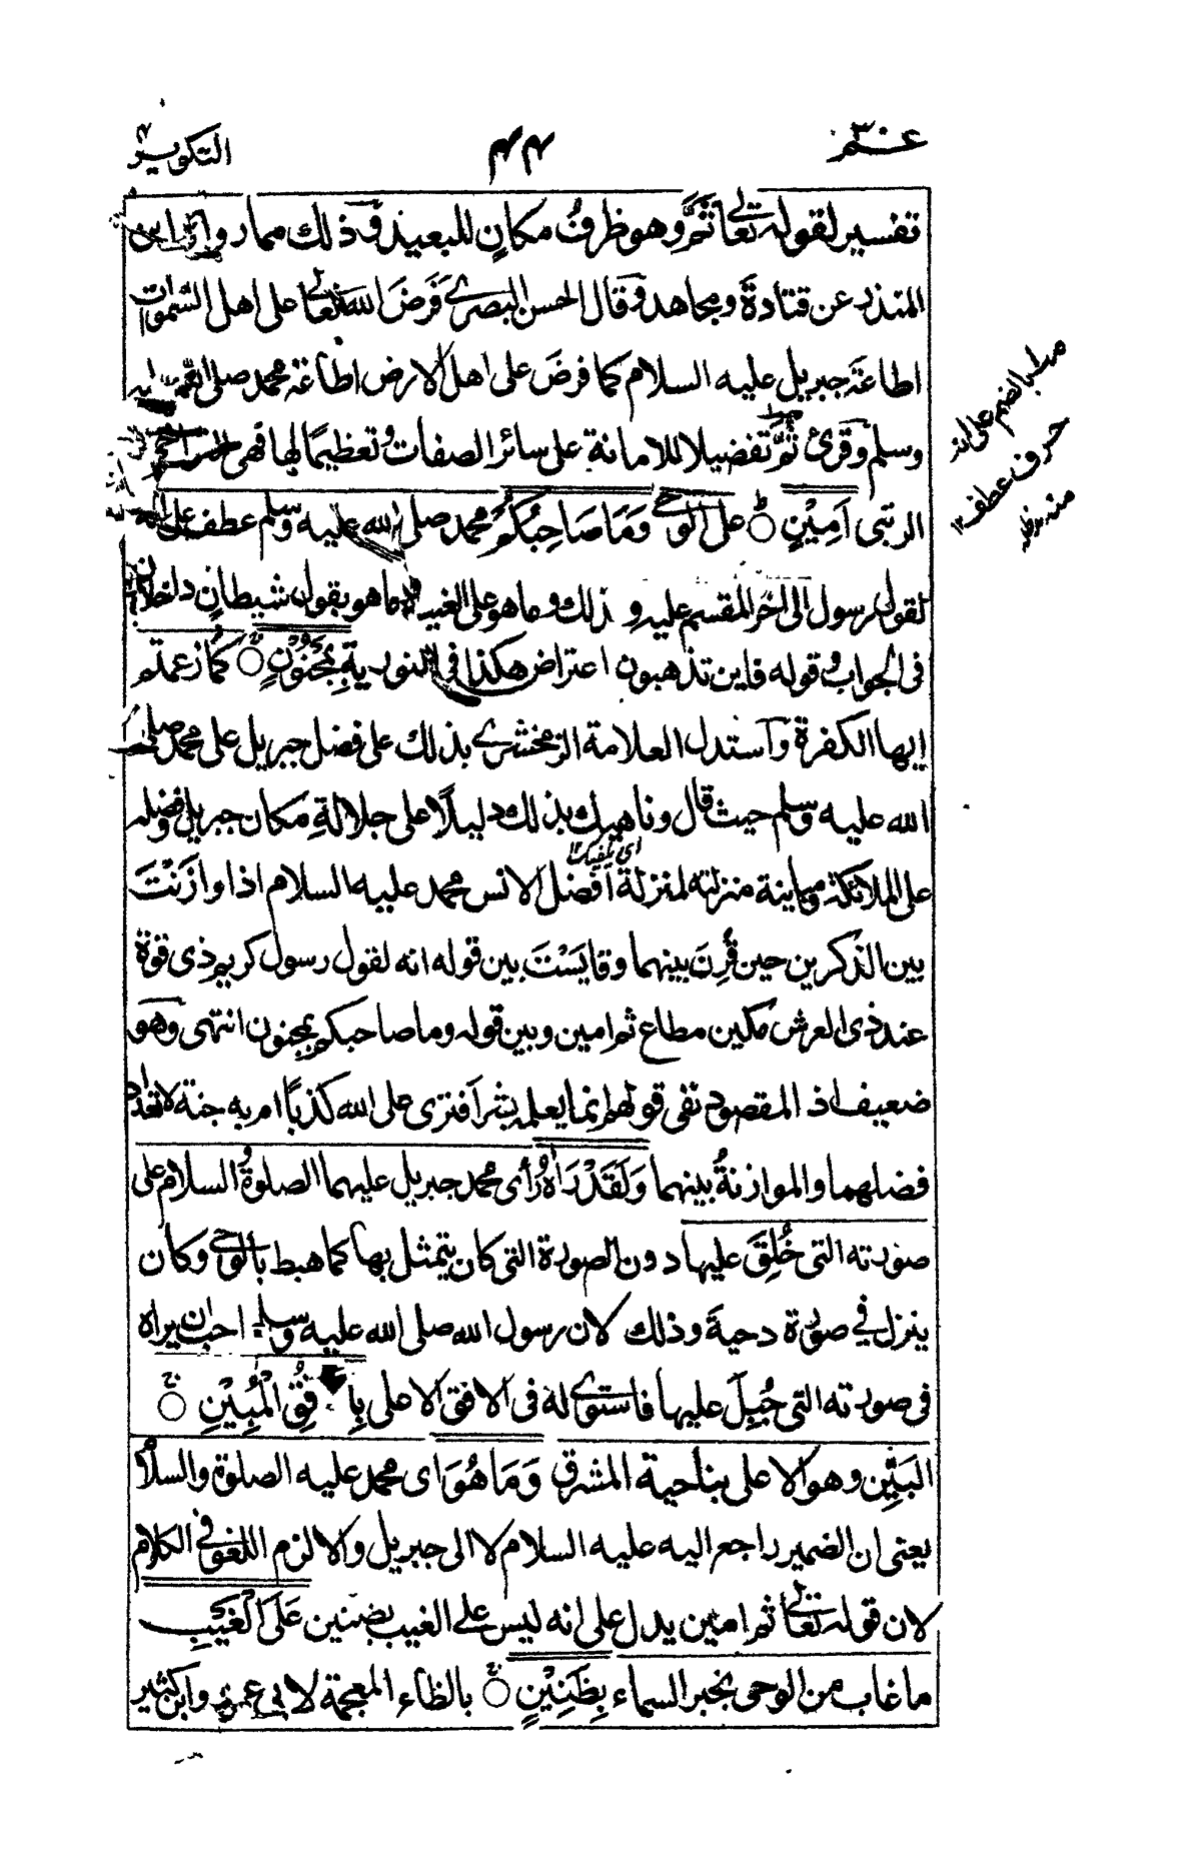 عم ٣٠
٤٤
التكوير
تفسير لقوله تعالى ثَمَّ وهو ظرفُ مكانٍ للبعيد وفى ذلك مما رواه ابن
المنذر عن قتادة ومجاهد وقال الحسن البصرى فَرَضَ الله تعالى على اهل السموات
اطاعَةَ جبريل عليه السلام كما فرضَ على اهل الارض اطاعة محمد صلى الله عليه
وسلم وَقرئ ثُمَّ تفضيلا للامانة على سائر الصفات وتعظيمًا لها فهى
الرتبى اَمِيْنٍ على الوحى وَمَا صَاحِبُكُمْ محمد صلى الله عليه وسلم عطف على
لقول رسول الى اخر المقسم عليه و ذلك وما هو على الغيب وما هو بقول شيطان داخلان
فى الجواب وقوله فاين تذهبون اعتراض هكذا فى النورية بِمَجْنُوْنٍ كما زعمتم
ايها الكفرة وَاستدل العلامة الزمخشرى بذلك على فضل جبريل على محمد صلى
الله عليه وسلم حيث قال وناهيك بذلك دليلًا على جلالةِ مكان جبريل وفضله
اى يكفيك ١٢
على الملائكة ومباينة منزلته لمنزلة افضل الانس محمد عليه السلام اذا وازَنْتَ
بين الذكرين حين قُرِنَ بينهما وقايَسْتَ بين قوله انه لقول رسول كريم ذى قوة
عند ذى العرش مكين مطاع ثم امين وبين قوله وما صاحبكم بمجنون انتهى وَهو
ضعيف اذ المقصود نفى قولهم انما يعلمه بشر اَفترى على الله كذبًا ام به جنة لا تعداد
فضلهما والموازنةُ بينهما وَلَقَدْ رَاٰهُ رأى محمد جبريل عليهما الصلوة والسلام على
صورته التى خُلِقَ عليها دون الصورة التى كان يتمثل بها كما هبط بالوحى وكان
ينزل فى صورة دحيةَ وذلك لان رسول الله صلى الله عليه وسلم احب ان يراه
فى صورته التى جُبِلَ عليها فاستوى له فى الافق الاعلى بِالْاُفُقِ الْمُبِيْنِ
البَيِّنِ وهو الاعلى بناحية المشرق وَمَا هُوَ اى محمد عليه الصلوة والسلام
يعنى ان الضمير راجع اليه عليه السلام لا الى جبريل والا لزم اللغو فى الكلام
لان قوله تعالى ثم امين يدل على انه ليس على الغيب بضنين عَلَى الْغَيْبِ
ما غاب من الوحى بخبر السماء بِظَنِيْنٍ بالظاء المعجمة لابى عمرو وابن كثير
بالضم على انه
حرف عطف ١٢
منه